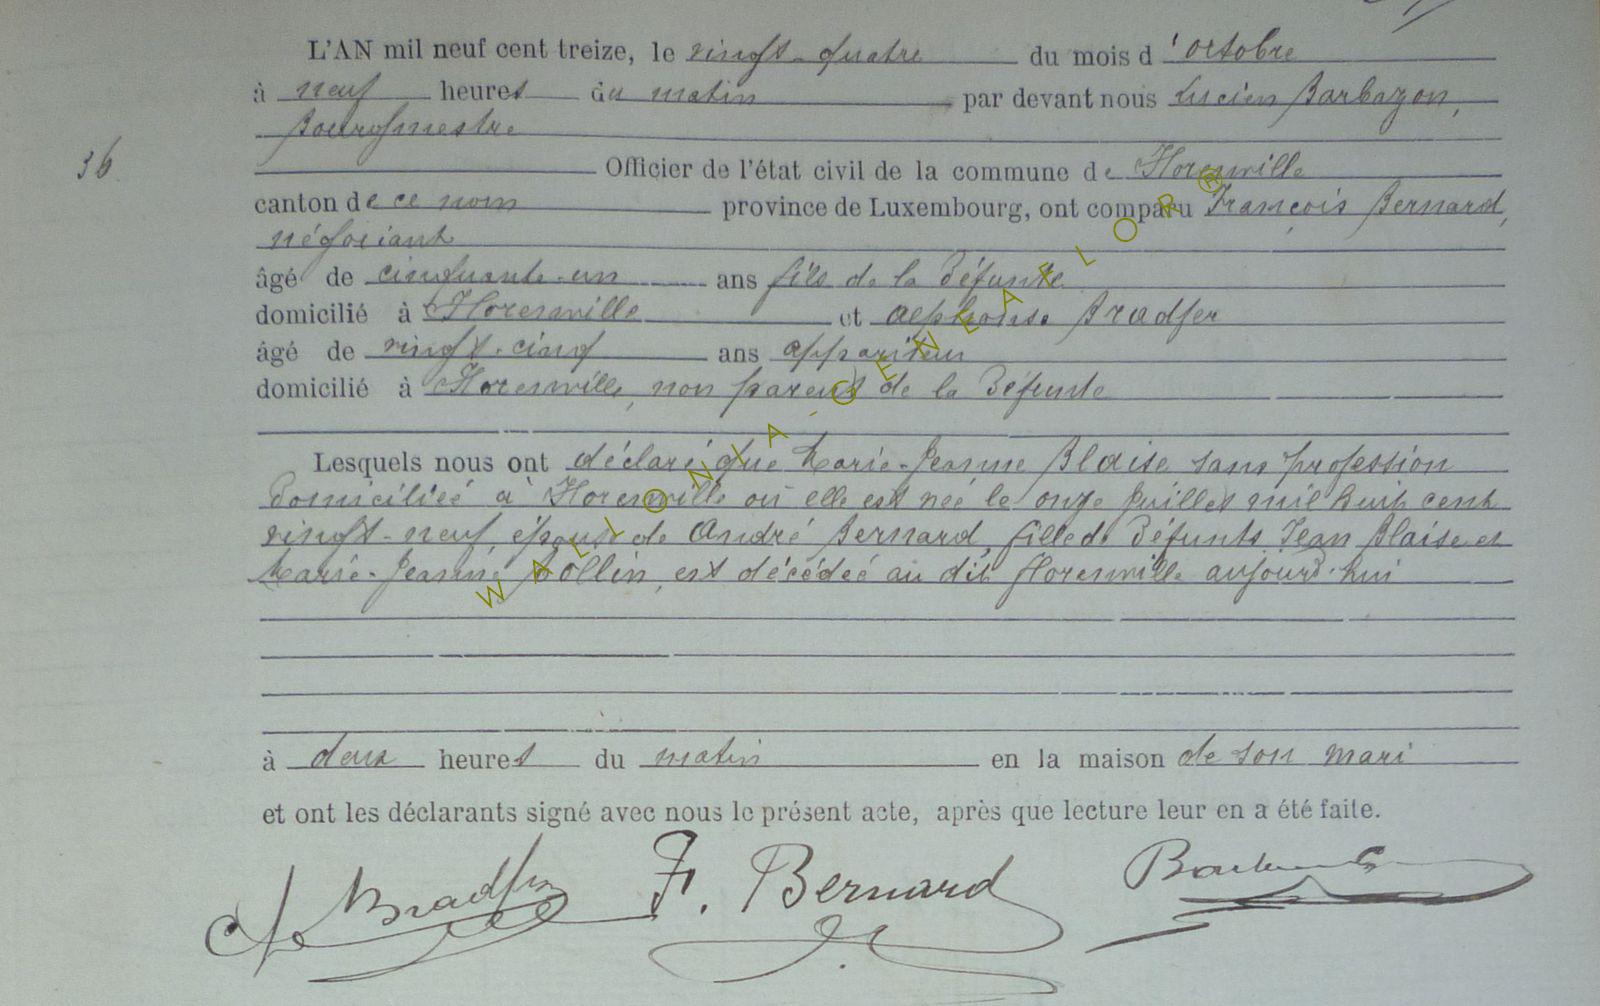 L'AN mil neuf cent treize, le vingt-quatre du mois d'octobre
à neuf heures du matin par devant nous Lucien Barbazon,
Bourgmestre
36 Officier de l'état civil de la commune de Florenville
canton de ce nom province de Luxembourg, ont comparu François Bernard,
négociant
âgé de cinquante-un ans fils de la Défunte
domicilié à Florenville et Alphonse Bradfer
âgé de vingt-cinq ans appariteur
domicilié à Florenville, non parent de la Défunte
Lesquels nous ont déclaré que Marie-Jeanne Blaise sans profession
Domiciliée à Florenville où elle est née le onze Juillet mil huit cent
vingt-neuf, épouse de André Bernard, fille de Défunts Jean Blaise et
Marie-Jeanne Collin, est décédée au dit Florenville aujourd'hui
à deux heures du matin en la maison de son mari
et ont les déclarants signé avec nous le présent acte, après que lecture leur en a été faite.
Bradfer F. Bernard
WALLONIA-GENEAFLOR®